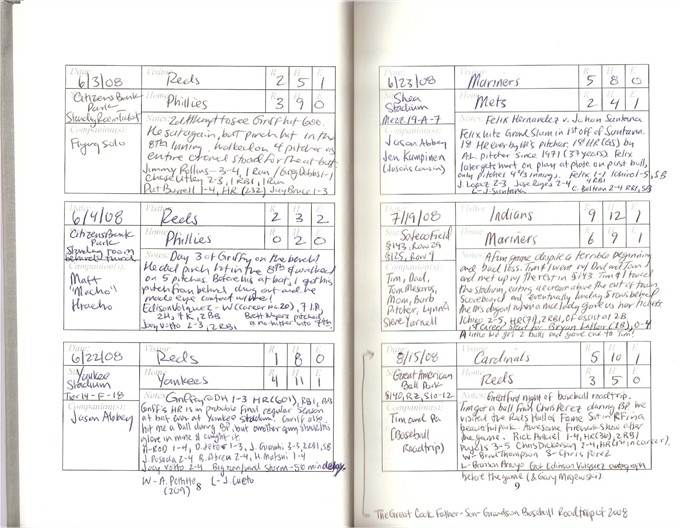 Date: 6/3/08 Visitor Reds R 2 H 5 E 1
Citizens Bank Park Home Phillies 3 9 0
Standing Room Ticket
Companion(s): Flying Solo
Notes: 2nd Attempt to see Griff hit 600.
He sat again, but pinch hit in the
8th Inning. walked on 4 pitches as
entire crowd stood for the at-bat.
Jimmy Rollins - 3-4, 1 Run / Greg Dobbs 1-1
Chase Utley 2-3, 1 RBI, 1 Run
Pat Burrell 1-4, HR Jay Bruce 1-3
6/4/08 Reds 2 3 2
Citizens Bank Park Phillies 0 2 0
Standing room behind
Companion(s): Matt "Nacho" Hracho
Notes: Day 3 of Griffey on the bench!
He did pinch hit in the 8th & walked
on 5 pitches. Before his at bat, I got his
pitch from behind dug out and he
made eye contact w/ me!
Edison Volquez - W 7 I.P.,
2H, 7K, 2BB Brett Myers pitched
Joey Votto 2-3, 2RBI a no-hitter into 7th
6/22/08 Reds 1 8 0
Yankee Stadium Yankees 4 11 1
Tier 14-F-18
Companion(s): Jason Abbey
Notes: Griffey @ DH 1-3 HR (601), RBI, BB
Griff's HR is probable final regular season
at bat ever at Yankee Stadium. Griff also
hit me a ball during BP, but another guy stuck his
glove in mine & caught it.
A-Rod 1-4, D. Jeter 1-3, J. Giambi 3-3, 2RBI, SB
J. Posada 2-4 B. Abreu 2-4, H. Matsui 1-4
Joey Votto 2-4 Big rain/wind storm - 50 min delay.
W - A. Pettitte L - J. Cueto
(209)
8
6/23/08 Mariners 5 8 0
Shea Stadium Mets 2 4 1
Mezz 19-A-7
Companion(s): Jason Abbey
Jen Kampinen
(Jason's cousin)
Notes: Felix Hernandez v. Johan Santana
Felix hits Grand Slam in 1st off of Santana.
1st HR ever by M's pitcher. 1st HR (GS) by
A.L. pitcher since 1971 (37 years). Felix
later gets hurt on play at plate on past ball,
only pitches 4 2/3 innings. Felix 1-1 Ichiro 1-5, SB
J. Lopez 2-3 Jose Reyes 2-4 4 RBI
L - J. Santana C. Beltran 2-4 RBI, SB
7/19/08 Indians 9 12 1
Safeco Field Mariners 6 9 1
§143, Row 29
Companion(s): Tim, Dad, Tom Mesaros, Mom, Barb Pitcher, Lynn & Steve Yarnell
Notes: A fine game despite a terrible beginning
and Dad loss. Tim & I went w/ Dad and Tom
and met up w/ the rest in §143. Tim & I toured
the stadium, eating
scoreboard and eventually landing 5 rows behind
the M's dugout when a nice lady gave us her tickets
Ichiro 2-5, HR
1st career start for Bryan LaHair (1B), 0-4
A
8/15/08 Cardinals 5 10 1
Great American Ball Park Reds 3 5 0
§140, R2, S10-12
Companion(s): Tim and Pa
[Baseball Roadtrip]
Notes: Great first night of baseball roadtrip.
Tim got a ball from Chris Perez during BP. We
visited the Reds Hall of Fame. Sat in RF in a
beautiful park. Awesome fireworks show after
the game. Rick Ankiel 1-4, HR, 2RBI
Pujols 3-5 Chris Dickerson 2-4, HR (1st in career)
W - Brad Thompson S - Chris Perez
L - Bronson Arroyo Got Edinson Volquez autograph
before the game (& Gary Majewski)
9
The Great Cook Father-Son-Grandson Baseball Roadtrip of 2008